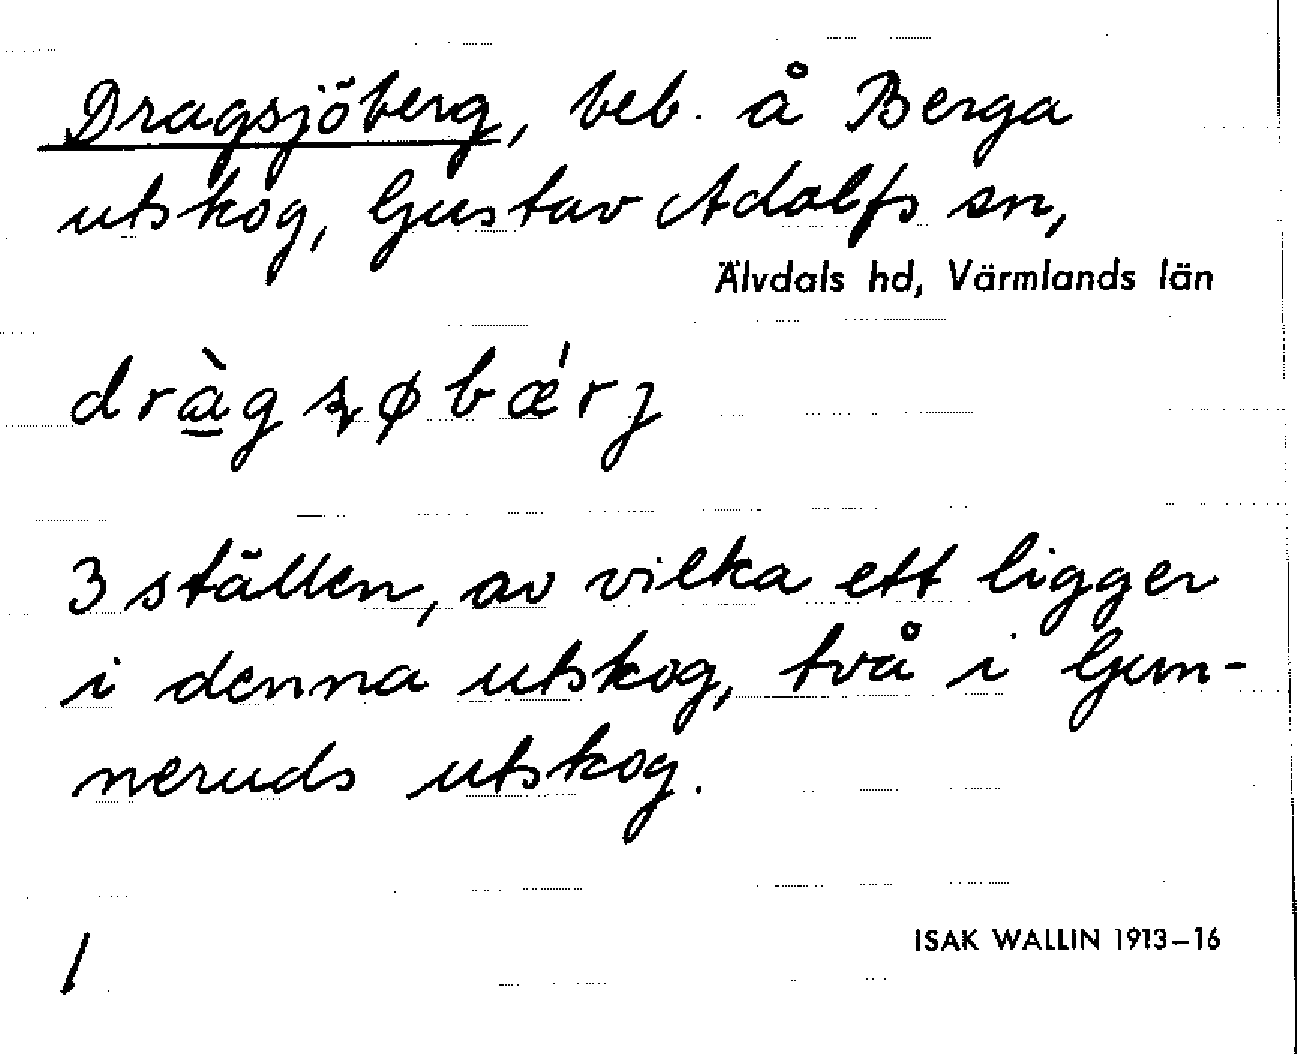 Dragsjöberg, beb. å Berga
utskog, Gustav Adolfs sn,
Älvdals hd, Värmlands län
3 ställen, av vilka ett ligger
i denna utskog, två i Gun-
neruds utskog.
1
ISAK WALLIN 1913-16